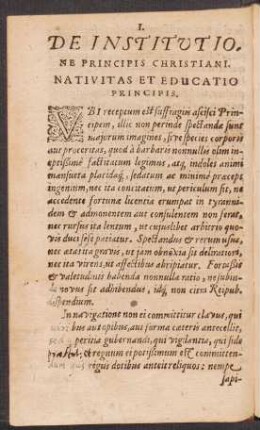 I.
DE INSTITVTIO.
NE PRINCIPIS CHRISTIANI.
NATIVITAS ET EDVCATIO
PRINCIPIS.
VBI receptum est suffragijs ascisci Prin-
cipem, illic non perinde spectandæ sunt
majorum imagines, sive species corporis
aut proceritas, quod à barbaris nonnullis olim in-
eptissimè factitatum legimus, atq; indoles animi
mansueta placidaq;, sedatum ac minimè præceps
ingenium, nec ita concitatum, ut periculum sit, ne
accedente fortunæ licentia erumpat in tyranni-
dem & admonentem aut consulentem non ferat,
nec rursus ita lentum, ut cujuslibet arbitrio quo-
vis duci sese patiatur. Spectandus & rerum usus,
nec ætas ita gravis, ut jam obnoxia sit deliration,
nec ita virens, ut affectibus abripiatur. Fortassis
& valetudinis habenda nonnulla ratio, ne subin-
novus sit adhibendus, idq; non citra Reipub.
dispendium.
In navigatione non ei committitur clavus, qui
bus aut opibus, aut forma cæteris antecellit,
peritia gubernandi, qui vigilantia, qui fide
præstat; et regnum ei potissimum est committen-
regijs dotibus anteit reliquos: nempe
sapi-